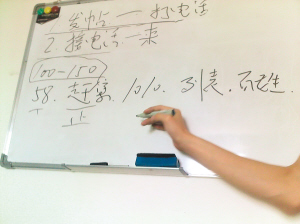 1 发帖 — 打电话
2. 接电话 — 来
100-150
58. 赶集. 1010. 列表. 百姓.